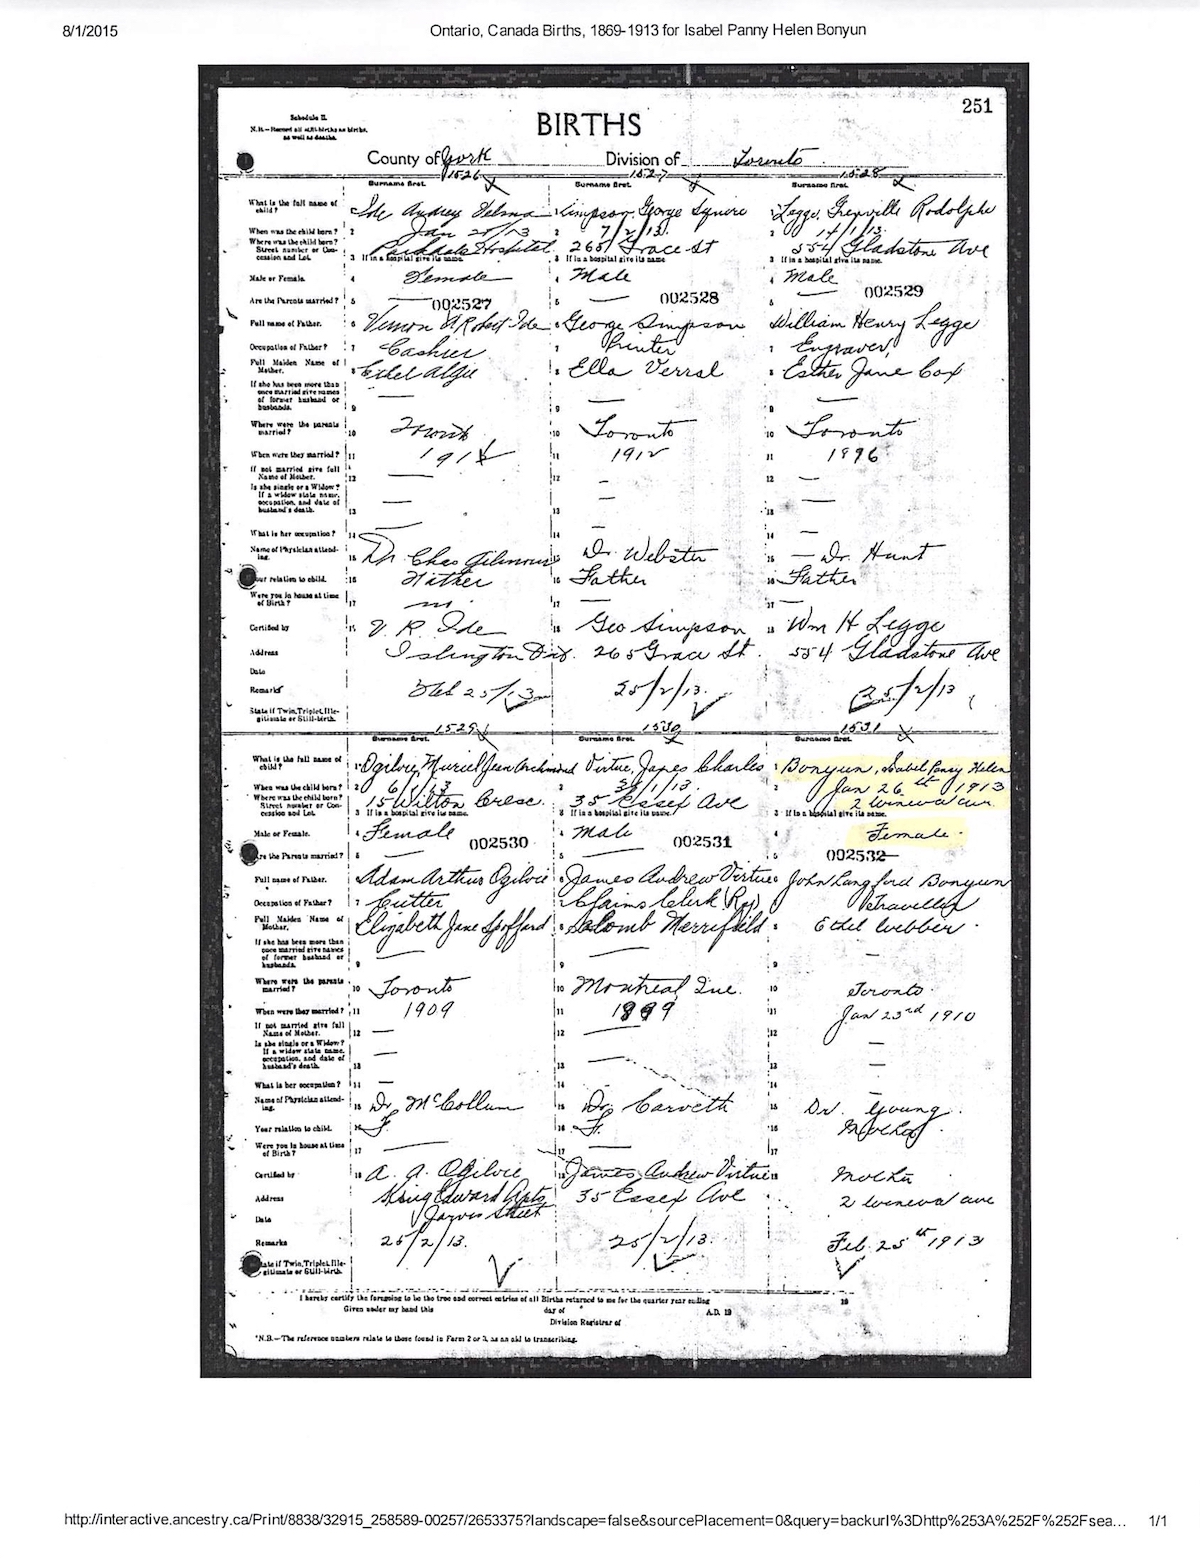 8/1/2015 Ontario, Canada Births, 1869-1913 for Isabel Panny Helen Bonyun
251
Schedule II.
N.B.—Record all still-births as births, as well as deaths.
BIRTHS
County of York Division of Toronto
1526 1527 1528
Surname first. Surname first. Surname first.
What is the full name of child? Ide Audrey Velma Simpson George Squire Legge, Grenville Rodolphe
When was the child born? 2 Jan 25/13 2 7/2/13 2 14/1/13
Where was the child born? Street number or Concession and Lot. Parkdale Hospital 265 Grace St 554 Gladstone Ave
3 If in a hospital give its name. 3 If in a hospital give its name 3 If in a hospital give its name.
Male or Female. 4 Female 4 Male 4 Male
Are the Parents married? 5 — 002527 5 — 002528 — 002529
Full name of Father. 6 Vernon Robert Ide 6 George Simpson William Henry Legge
Occupation of Father? 7 Cashier 7 Printer 7 Engraver,
Full Maiden Name of Mother. 8 Ethel Algie 8 Ella Verral 8 Esther Jane Cox
If she has been more than once married give names of former husband or husbands. 9 — 9 — 9 —
Where were the parents married? 10 Toronto 10 Toronto 10 Toronto
When were they married? 11 191 11 1912 11 1896
If not married give full Name of Mother. 12 — 12 — 12 —
Is she single or a Widow? If a widow state name, occupation, and date of husband's death. 13 — 13 — 13 —
What is her occupation? 14 — 14 — 14 —
Name of Physician attending. 15 Dr Chas Gilmour 15 Dr. Webster 15 — Dr. Hunt
Your relation to child. 16 Father 16 Father 16 Father
Were you in house at time of Birth? 17 no. 17 — 17 —
Certified by V. R. Ide 18 Geo Simpson 18 Wm H Legge
Address Islington 265 Grace St. 554 Gladstone Ave
Date
Remarks Feb 25/13 25/2/13. 25/2/13
State if Twin, Triplet, Illegitimate or Still-birth.
1529 1530 1531
Surname first. Surname first. Surname first.
What is the full name of child? 1 Ogilvie, Muriel Jean Virtue, James Charles 1 Bonyun, Isabel Panny Helen
When was the child born? 2 6/1/13 2 /1/13. 2 Jan 26th 1913
Where was the child born? Street number or Concession and Lot. 15 Wilton Cresc. 35 Essex Ave 2 Wineva ave.
3 If in a hospital give its name. 3 If in a hospital give its name. 3 If in a hospital give its name.
Male or Female. 4 Female 4 Male 4 Female.
Are the Parents married? 5 — 002530 5 — 002531 5 002532
Full name of Father. Adam Arthur Ogilvie James Andrew Virtue John Langford Bonyun
Occupation of Father? 7 Cutter Claims Clerk (Ry) Traveller
Full Maiden Name of Mother. Elizabeth Jane Spofford 8 Merrifield 8 Ethel Webber.
If she has been more than once married give names of former husband or husbands. 9 — 9 — 9 —
Where were the parents married? 10 Toronto 10 Montreal, Que. 10 Toronto.
When were they married? 11 1909 11 1899 11 Jan 23rd 1910
If not married give full Name of Mother. 12 — 12 — 12 —
Is she single or a Widow? If a widow state name, occupation, and date of husband's death. 13 — 13 — 13 —
What is her occupation? 14 — 14 14 —
Name of Physician attending. 15 Dr. McCollum 15 Dr. Carveth 15 Dr. Young.
Your relation to child. 16 F. 16 F. 16 Mother.
Were you in house at time of Birth? 17 — 17 — 17
Certified by 18 A. A. Ogilvie 18 James Andrew Virtue 18 Mother
Address King Edward Apts, Jarvis Street 35 Essex Ave 2 Wineva ave
Date
Remarks 25/2/13. 25/2/13. Feb. 25th 1913
State if Twin, Triplet, Illegitimate or Still-birth.
I hereby certify the foregoing to be the true and correct entries of all Births returned to me for the quarter year ending 19
Given under my hand this day of A.D. 19
Division Registrar of
*N.B.—The reference numbers relate to those found in Form 2 or 3, as an aid to transcribing.
http://interactive.ancestry.ca/Print/8838/32915_258589-00257/2653375?landscape=false&sourcePlacement=0&query=backurl%3Dhttp%253A%252F%252Fsea... 1/1